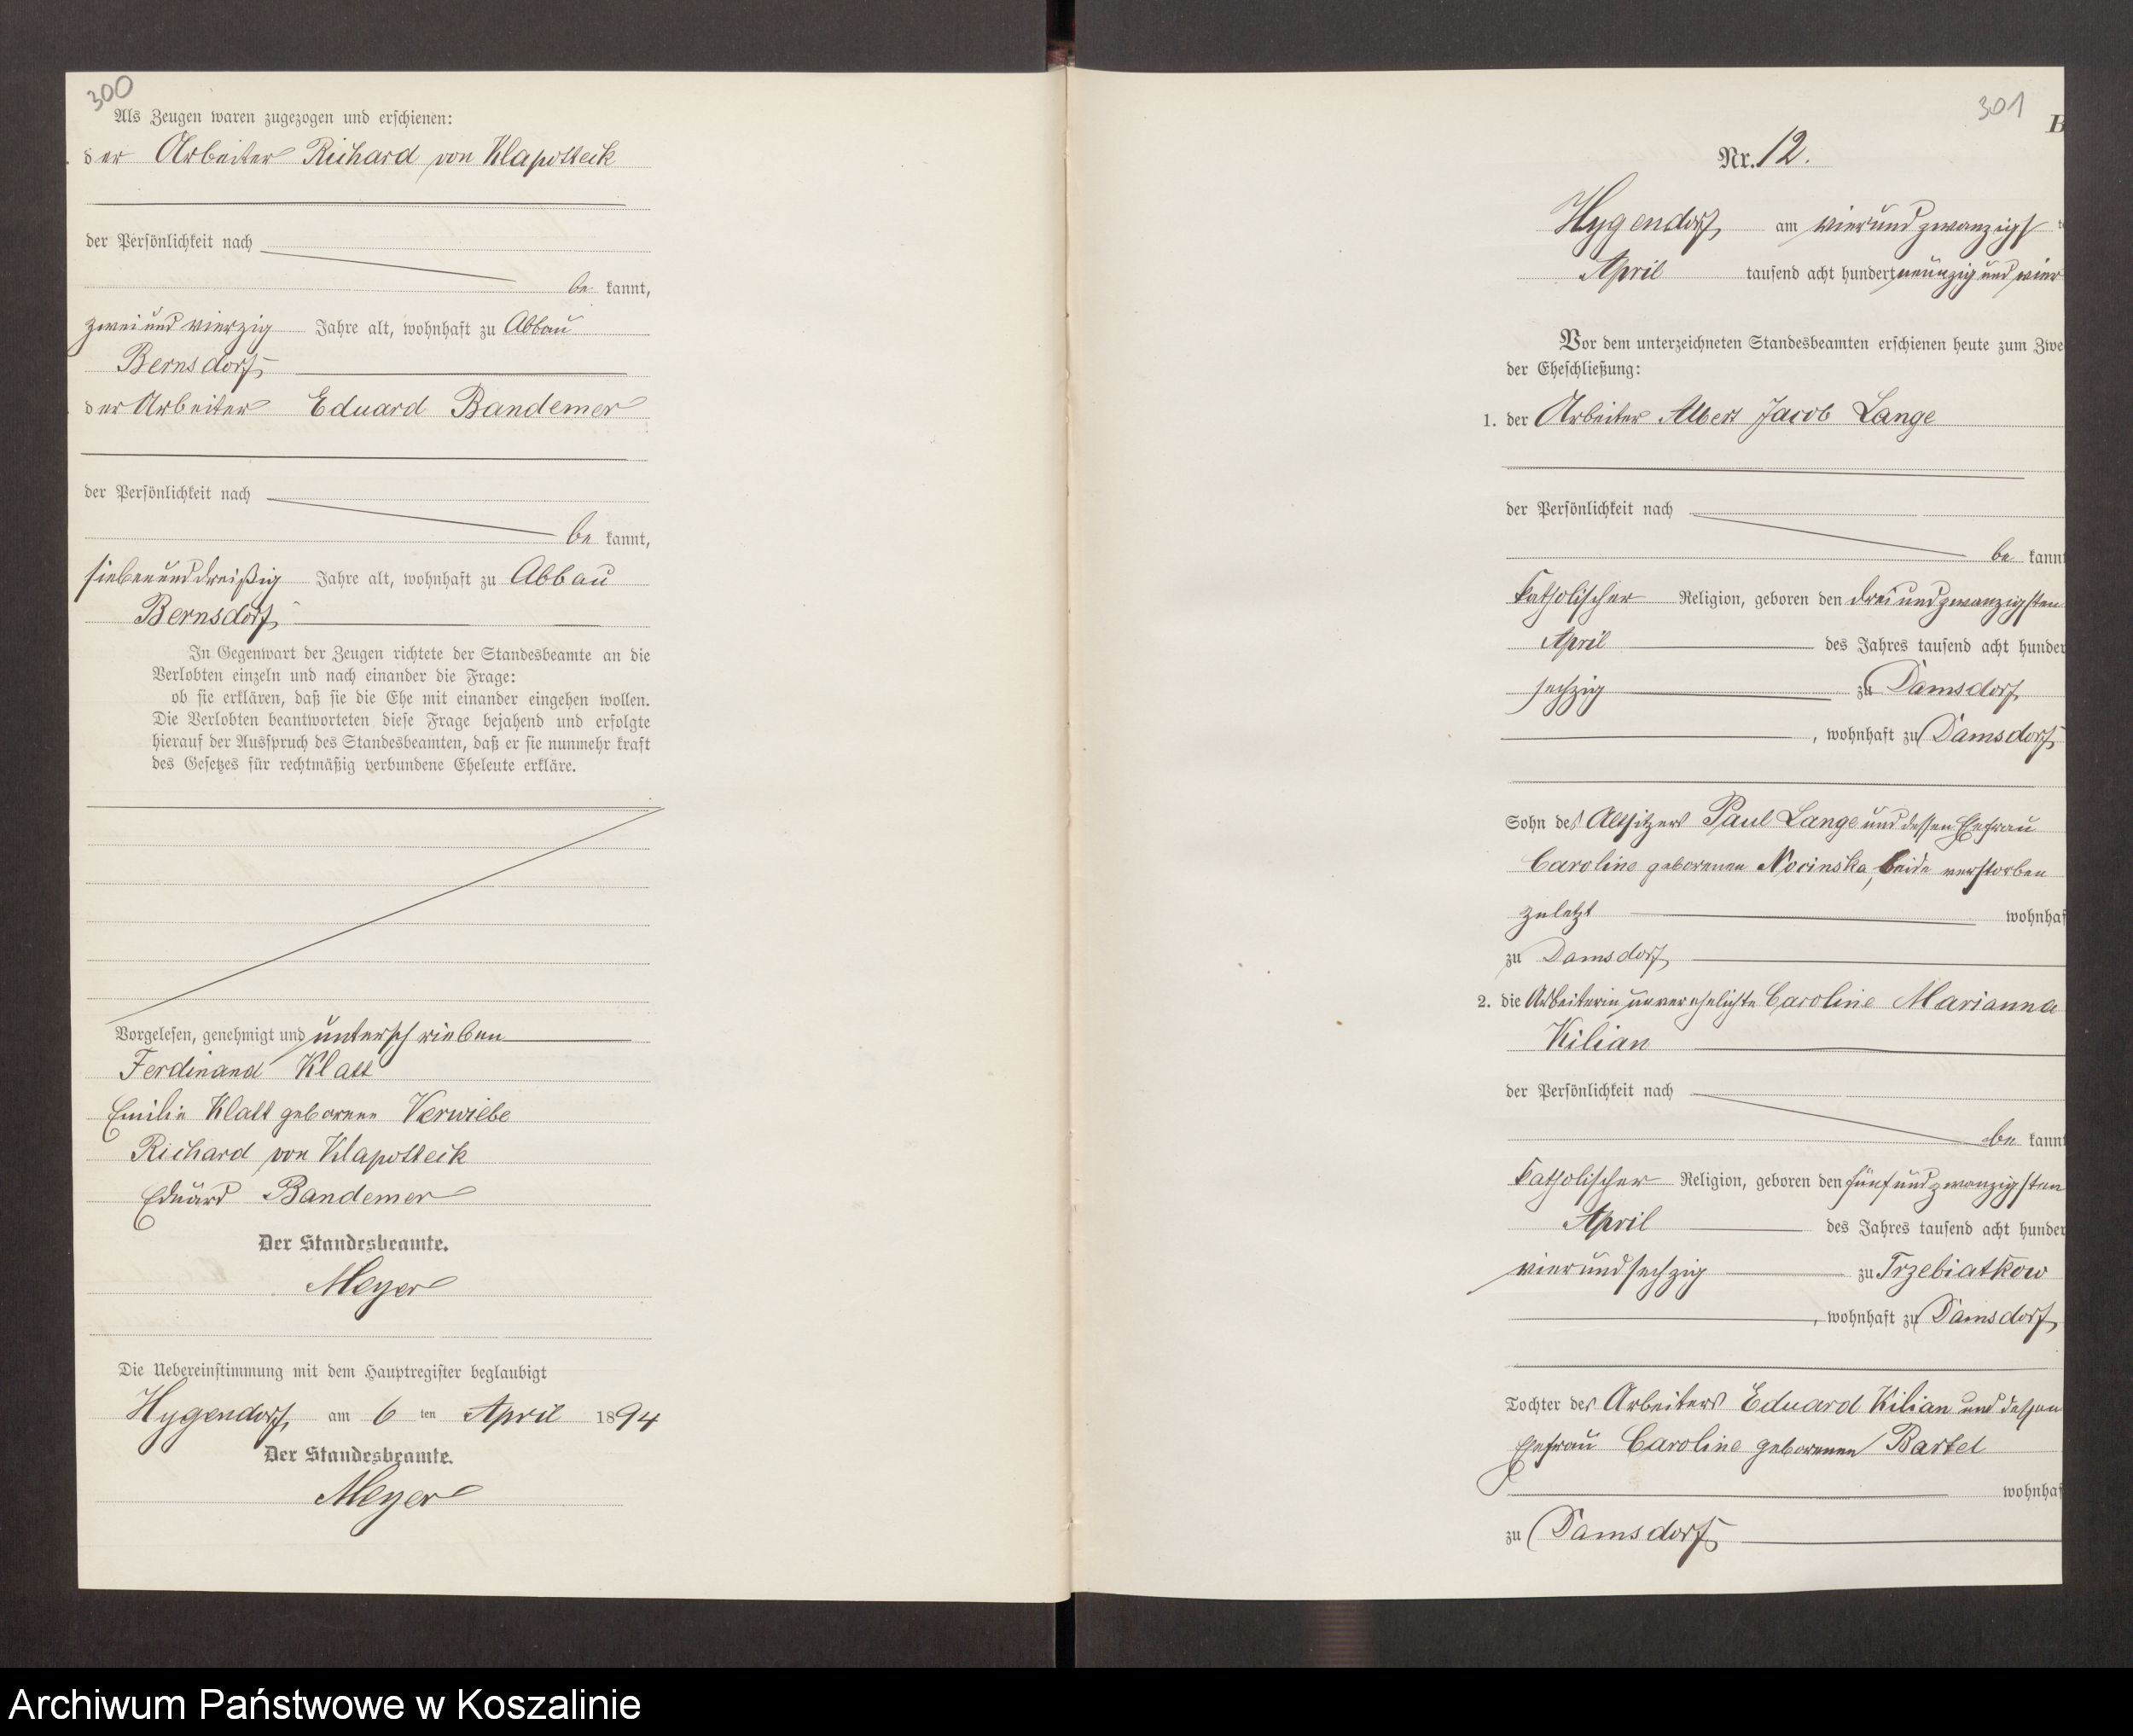 300
Als Zeugen waren zugezogen und erschienen:
der Arbeiter Richard von Klapotteck
der Persönlichkeit nach
be kannt,
zweiundvierzig Jahre alt, wohnhaft zu Abbau
Bernsdorf
der Arbeiter Eduard Bandemer
der Persönlichkeit nach
be kannt,
siebenunddreißig Jahre alt, wohnhaft zu Abbau
Bernsdorf
In Gegenwart der Zeugen richtete der Standesbeamte an die
Verlobten einzeln und nach einander die Frage:
ob sie erklären, daß sie die Ehe mit einander eingehen wollen.
Die Verlobten beantworteten diese Frage bejahend und erfolgte
hierauf der Ausspruch des Standesbeamten, daß er sie nunmehr kraft
des Gesetzes für rechtmäßig verbundene Eheleute erkläre.
Vorgelesen, genehmigt und unterschrieben
Ferdinand Klatt
Emilie Klatt geborene Verwiebe
Richard von Klapotteck
Eduard Bandemer
Der Standesbeamte.
Meyer
Die Uebereinstimmung mit dem Hauptregister beglaubigt
Hygendorf am 6 ten April 1894
Der Standesbeamte.
Meyer
301
B
Nr. 12.
Hygendorf am vierundzwanzigst
April tausend acht hundert neunzig und vier
Vor dem unterzeichneten Standesbeamten erschienen heute zum Zwe
der Eheschließung:
1. der Arbeiter Albert Jacob Lange
der Persönlichkeit nach
be kannt
katholischer Religion, geboren den dreiundzwanzigsten
April des Jahres tausend acht hunder
sechzig zu Damsdorf
, wohnhaft zu Damsdorf
Sohn des Altsitzers Paul Lange und dessen Ehefrau
Caroline geborenen Nocinska, beide verstorben
zuletzt wohnhaf
zu Damsdorf
2. die Arbeiterin unverehelichte Caroline Marianna
Kilian
der Persönlichkeit nach
be kannt
katholischer Religion, geboren den fünfundzwanzigsten
April des Jahres tausend acht hunder
vierundsechzig zu Trzebiatkow
, wohnhaft zu Damsdorf
Tochter des Arbeiters Eduard Kilian und dessen
Ehefrau Caroline geborenen Bartel
wohnhaf
zu Damsdorf
Archiwum Państwowe w Koszalinie